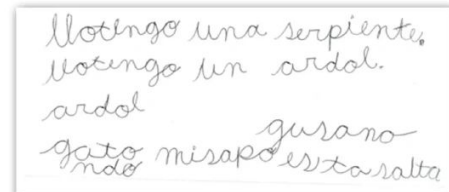 llotengo una serpiente.
llotengo un ardol.
ardol
gusano
gato misapo esta salta
ndo